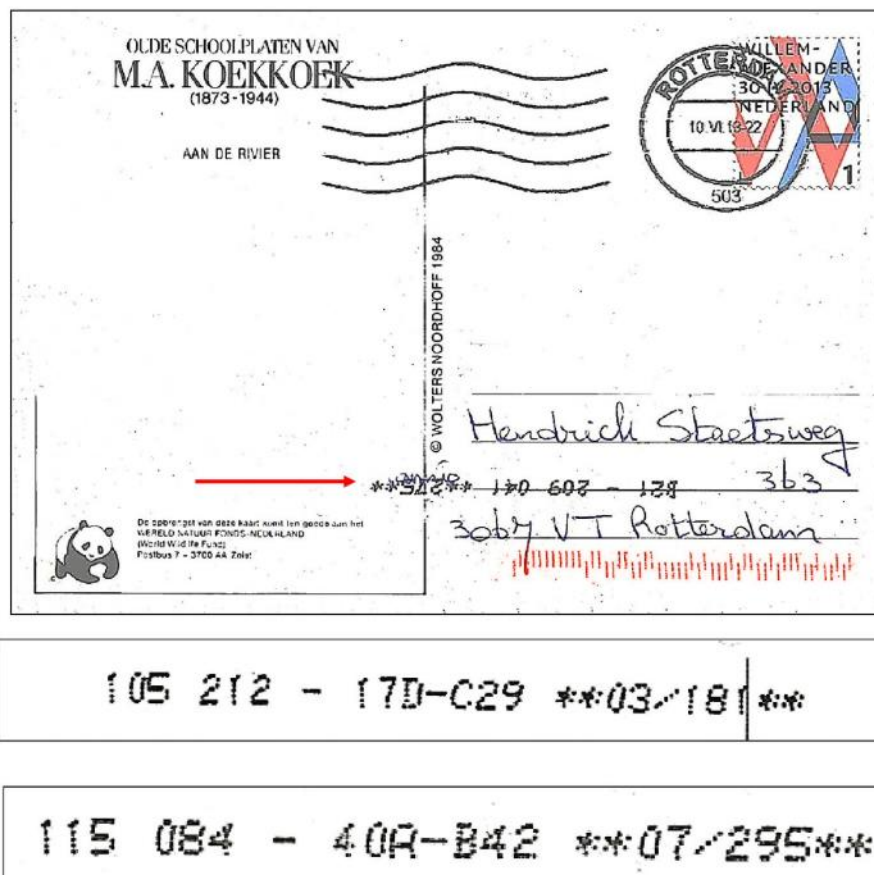 OUDE SCHOOLPLATEN VAN
M.A. KOEKKOEK
(1873-1944)
AAN DE RIVIER
WILLEM-
ALEXANDER
30-IV-2013
NEDERLAND
1
ROTTERDAM
10.VI.13-22
503
© WOLTERS NOORDHOFF 1984
Hendrick Staetsweg
363
3067 VT Rotterdam
821 - 209 041 **
De opbrengst van deze kaart komt ten goede aan het
WERELD NATUUR FONDS-NEDERLAND
(World Wild life Fund)
Postbus 7 - 3700 AA Zeist
105 212 - 17D-C29 **03/181**
115 084 - 40A-B42 **07/295**